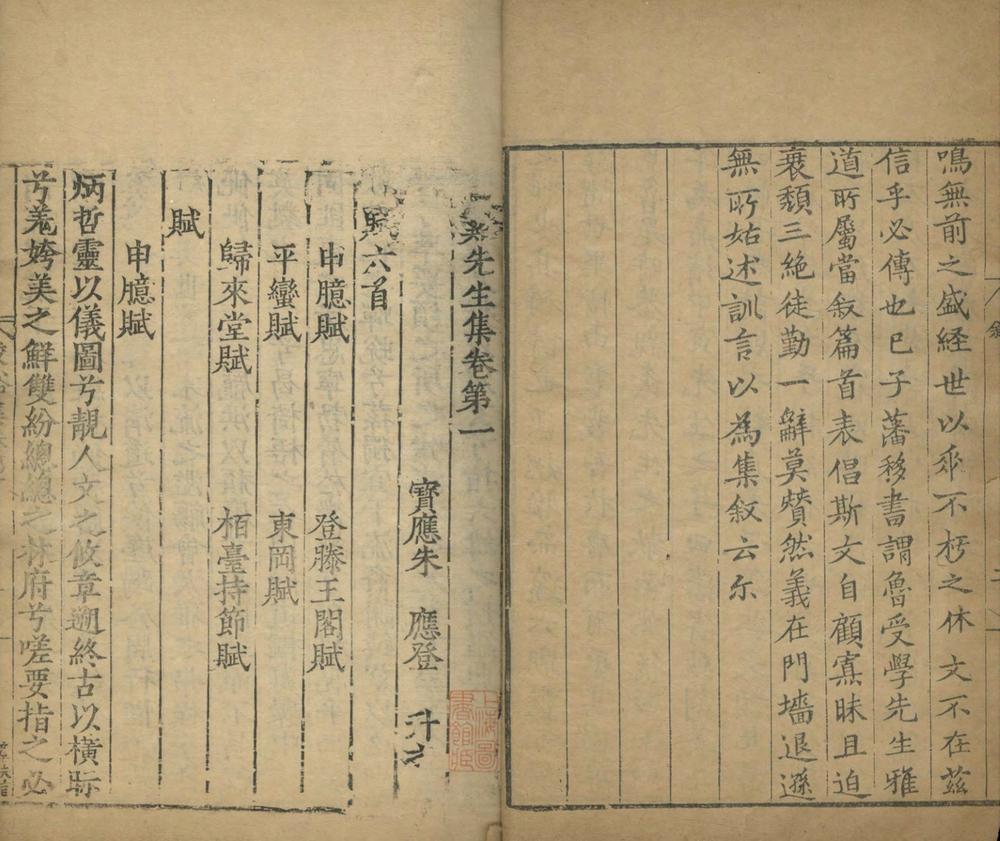 鳴無前之盛経世以來不朽之休文不在茲
信乎必傳也已子藩移書謂魯受學先生雅
道所屬當叙篇首表倡斯文自顧寡昧且迫
衰頹三絶徒勤一辭莫贊然義在門墻退遜
無所姑述訓言以為集叙云尔
先生集卷第一
寶應朱 應登 升之
賦六首
申臆賦 登滕王閣賦
平蠻賦 東岡賦
歸來堂賦 栢臺持節賦
賦
申臆賦
炳哲靈以儀圖兮靚人文之攸章遡終古以橫眎
兮羗姱美之鮮雙紛總總之林府兮嗟要指之必
上海圖書館藏